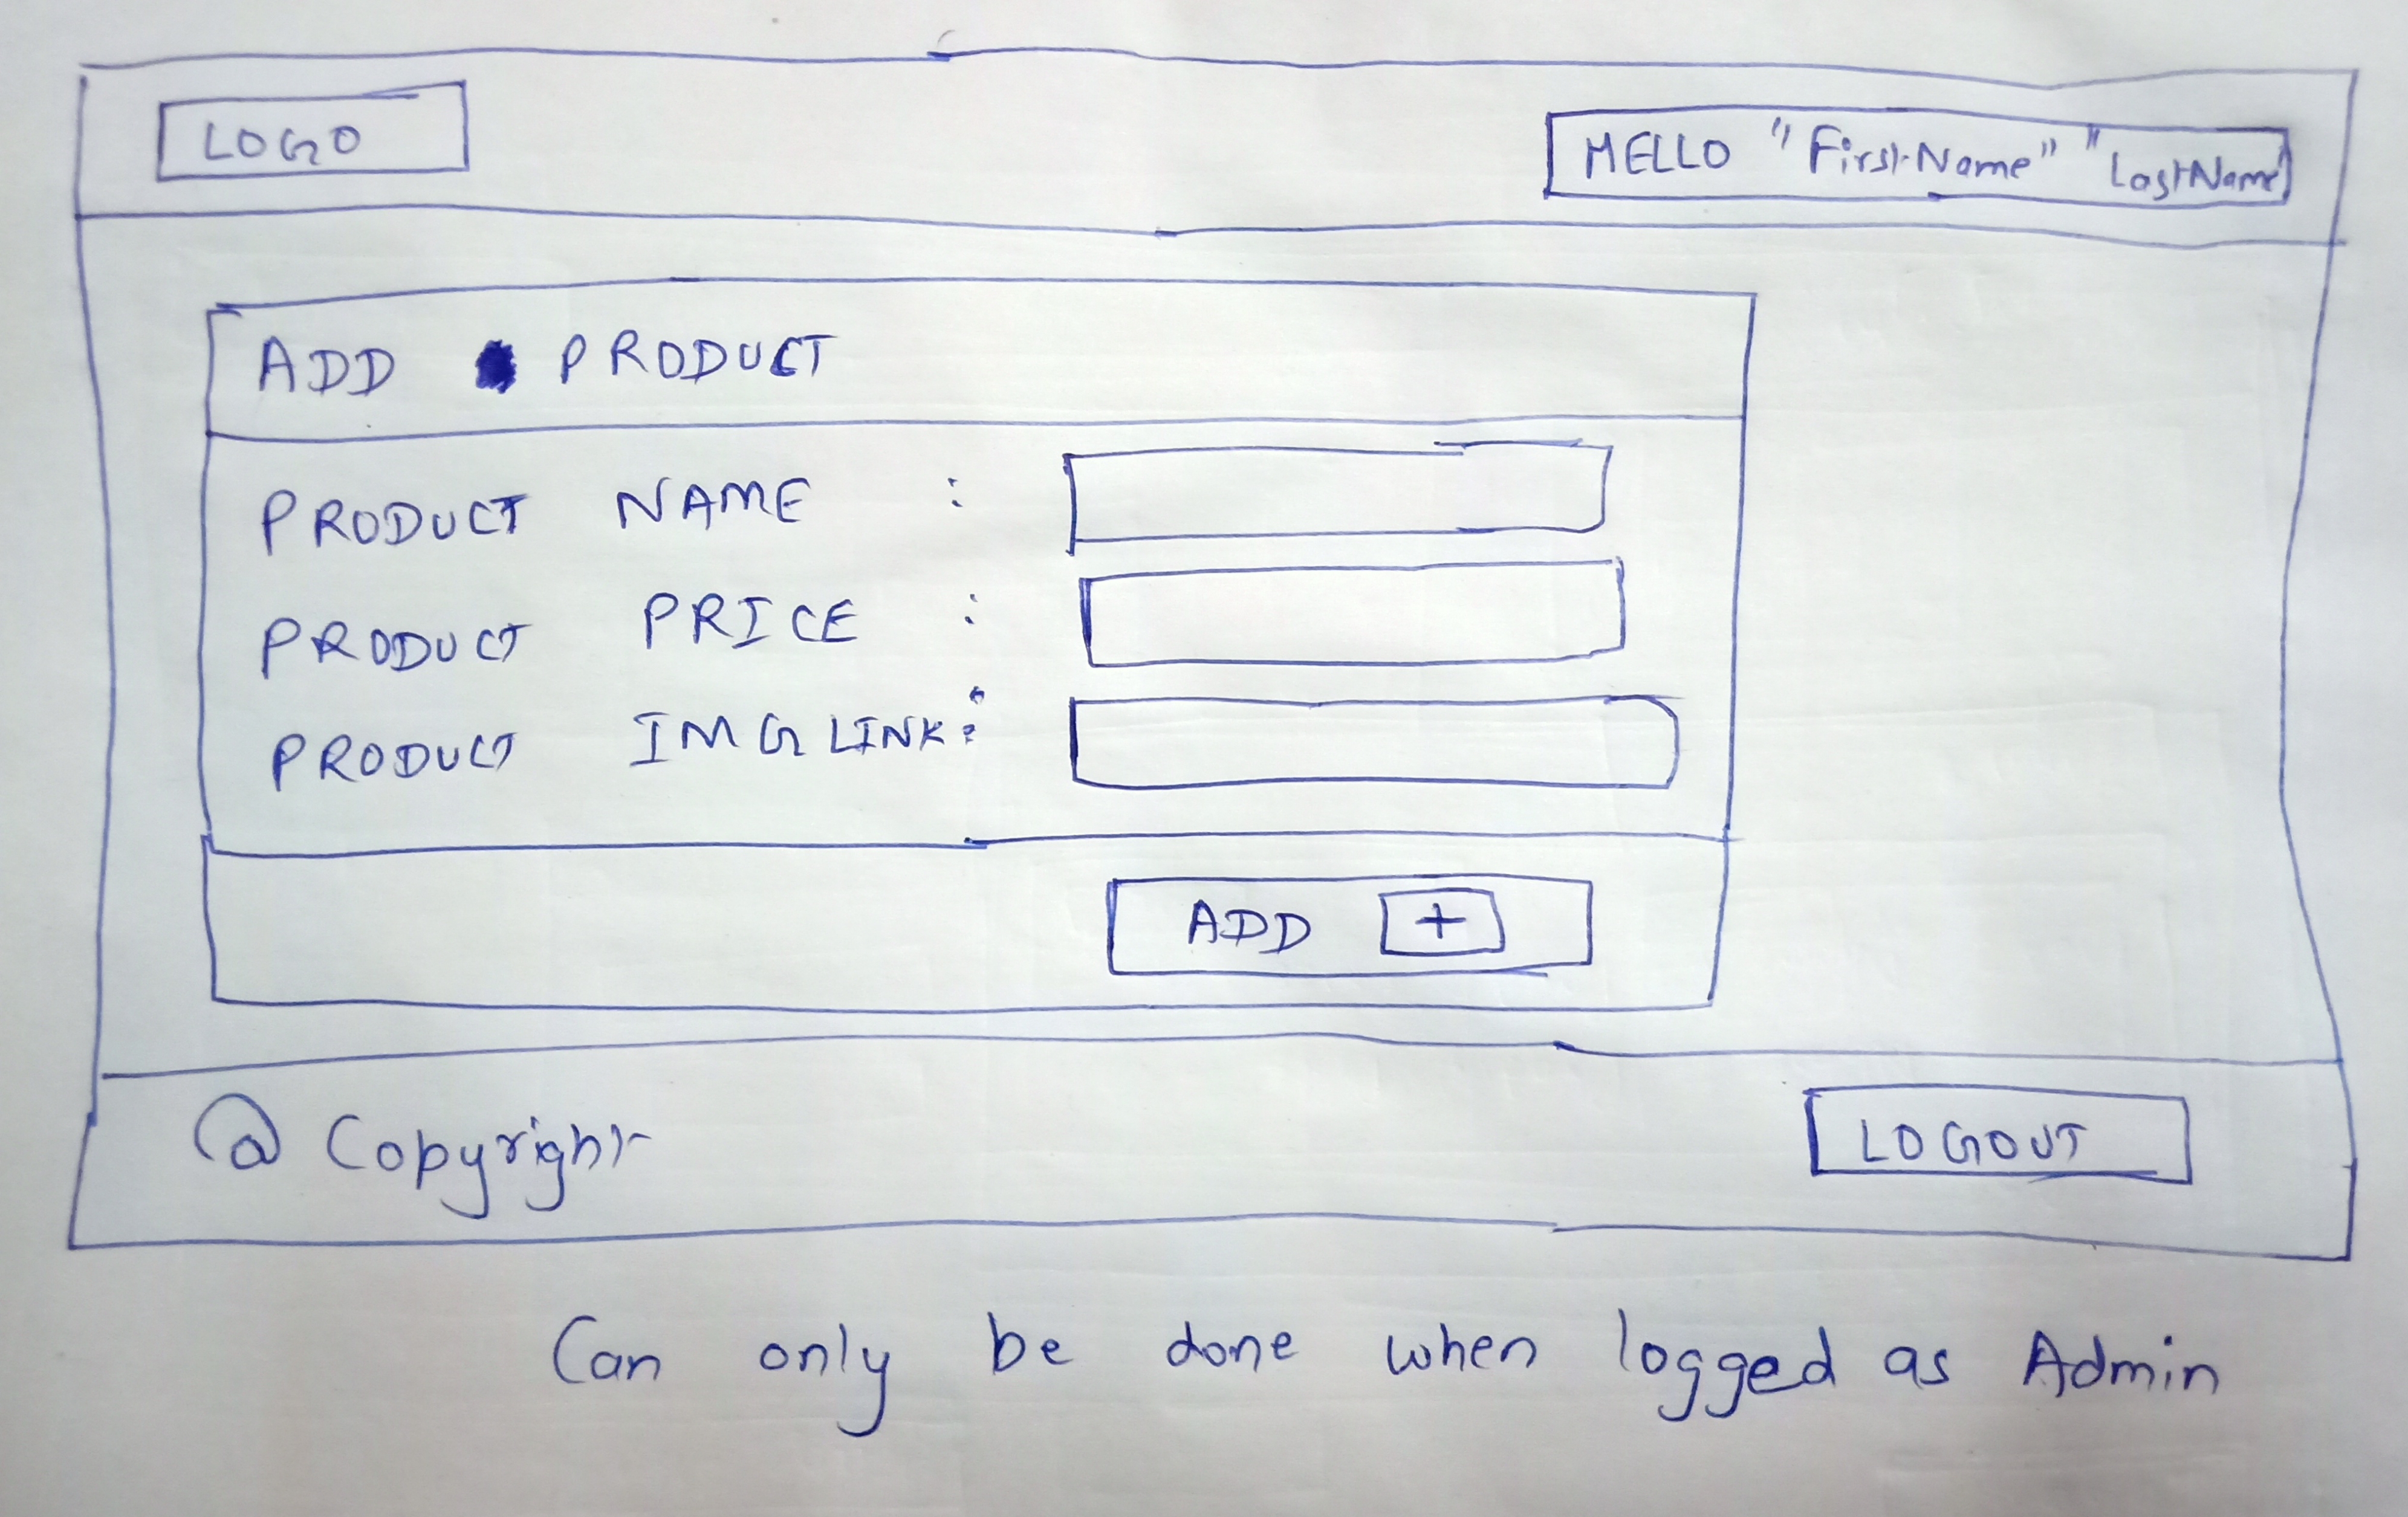 LOGO
HELLO "FirstName" "LastName"
ADD PRODUCT
PRODUCT NAME :
PRODUCT PRICE :
PRODUCT IMG LINK :
ADD +
@ Copyright
LOGOUT
Can only be done when logged as Admin